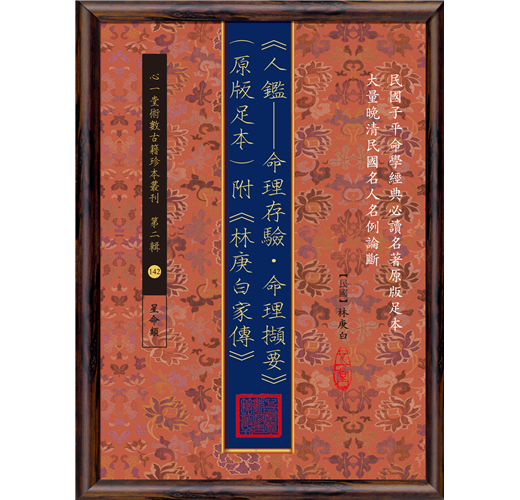 民國子平命學經典必讀名著原版足本
大量晚清民國名人名例論斷
【民國】林庚白
《人鑑——命理存驗·命理擷要》
（原版足本）附《林庚白家傳》
心一堂術數古籍珍本叢刊 第二輯 142 星命類